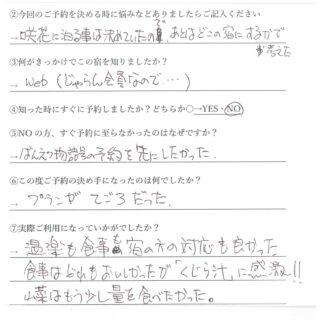 ②今回のご予約を決める時に悩みなどありましたらご記入ください
→ 咲花に泊る事は決めていたので、あとはどこの宿にするかで
考えた
③何がきっかけでこの宿を知りましたか？
→ web (じゃらん会員なので…)
④知った時にすぐに予約しましたか？どちらか○→YES・NO
⑤NOの方、すぐ予約に至らなかったのはなぜですか？
→ ばんえつ物語号の予約を先にしたかった.
⑥この度ご予約の決め手になったのは何でしたか？
→ プランが てごろ だった.
⑦実際ご利用になっていかがでしたか？
→ 温泉も食事も宿の方の対応も良かった
食事はどれもおいしかったが「くじら汁」に感激!!
山菜はもう少し量を食べたかった。